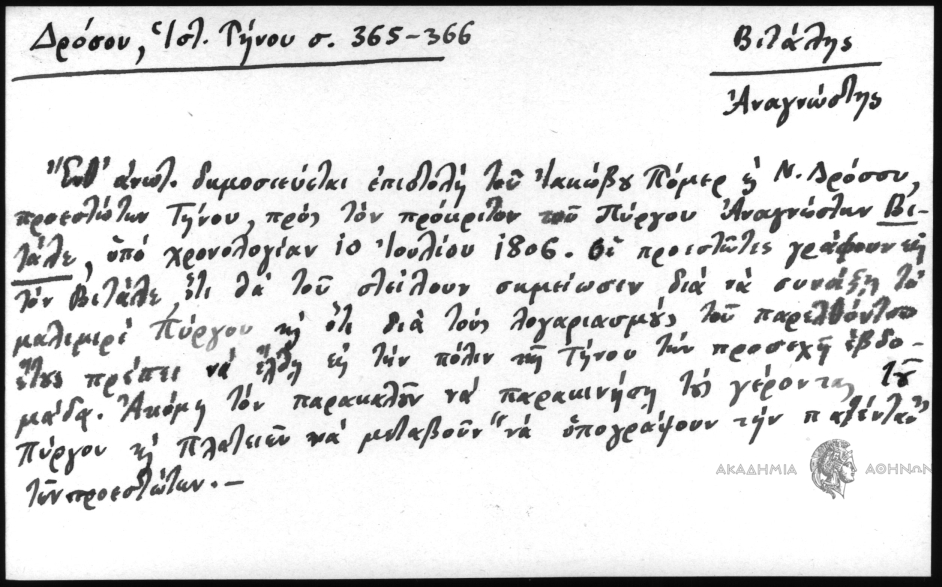 Δρόσου, Ἱστ. Τήνου σ. 365-366
Βιτάλης
Ἀναγνώστης
Ἐνθ' ἀνωτ. δημοσιεύεται ἐπιστολή τοῦ Ἰακώβου Πόμερ ϗ Ν. Δρόσου,
προεστώτων Τήνου, πρός τὸν πρόκριτον τοῦ Πύργου Ἀναγνώστην Βι-
τάλε, ὑπό χρονολογίαν 10 Ἰουλίου 1806. Οἱ προεστῶτες γράφουν εἰς
τόν Βιτάλε, ὅτι θά τοῦ στείλουν σημείωσιν διά νά συνάξῃ τό
μαλιμερί Πύργου ϗ ὅτι διά τούς λογαριασμούς τοῦ παρελθόντος
ἔτους πρέπει νά ἔλθῃ εἰς τήν πόλιν τῆς Τήνου τήν προσεχῆ ἑβδο-
μάδα. Ἀκόμη τόν παρακαλοῦν νά παρακινήσῃ τούς γέροντας τοῦ
Πύργου ϗ Πλατειῶν νά μεταβοῦν "νά ὑπογράψουν τήν πατένταν"
τῶν προεστώτων.-
ΑΚΑΔΗΜΙΑ ΑΘΗΝΩΝ